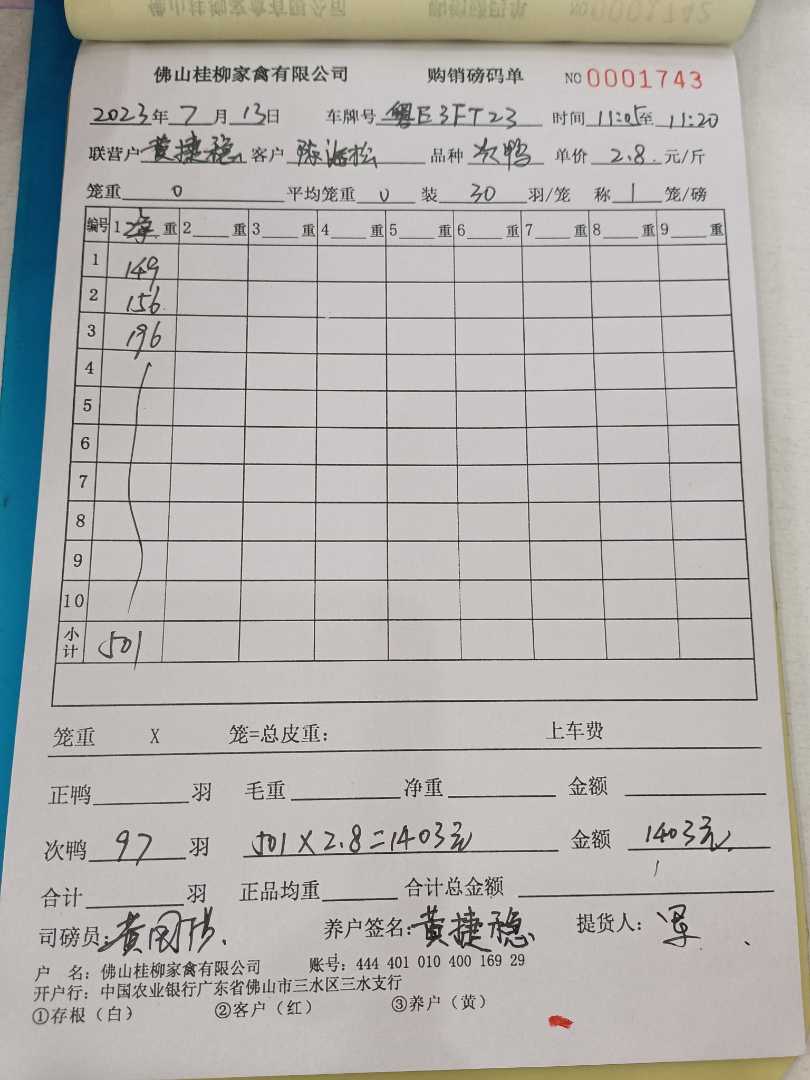 佛山桂柳家禽有限公司 购销磅码单 NO 0001743
2023年7月13日 车牌号 粤E3FT23 时间 11:05至 11:20
联营户 黄捷稳 客户 陈海松 品种 次鸭 单价 2.8 元/斤
笼重 0 平均笼重 0 装 30 羽/笼 称 1 笼/磅
编号 1 净 重 2 重 3 重 4 重 5 重 6 重 7 重 8 重 9 重
1 149
2 156
3 196
4
5
6
7
8
9
10
小计 501
笼重 X 笼=总皮重： 上车费
正鸭 羽 毛重 净重 金额
次鸭 97 羽 501×2.8=1403元 金额 1403元
合计 羽 正品均重 合计总金额
司磅员： 养户签名：黄捷稳 提货人：
户 名：佛山桂柳家禽有限公司 账号：444 401 010 400 169 29
开户行：中国农业银行广东省佛山市三水区三水支行
①存根（白） ②客户（红） ③养户（黄）